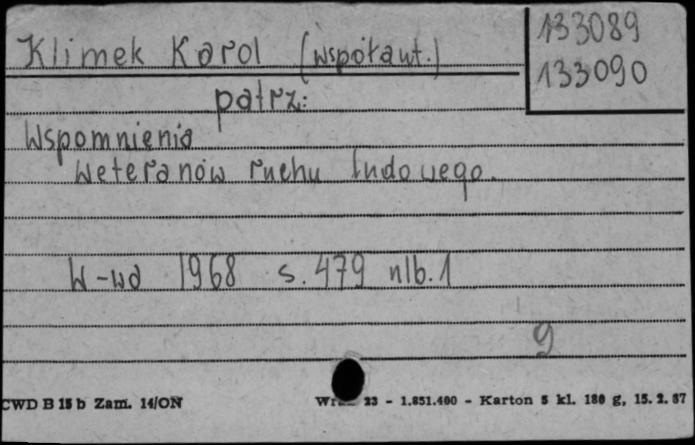 Klimek Karol (współaut.)
133089
133090
patrz:
Wspomnienia
weteranów ruchu ludowego.
W-wa 1968 s. 479 nlb. 1
9
CWD B 15 b Zam. 14/ON
23 - 1.851.400 - Karton 5 kl. 180 g, 15. 2. 67